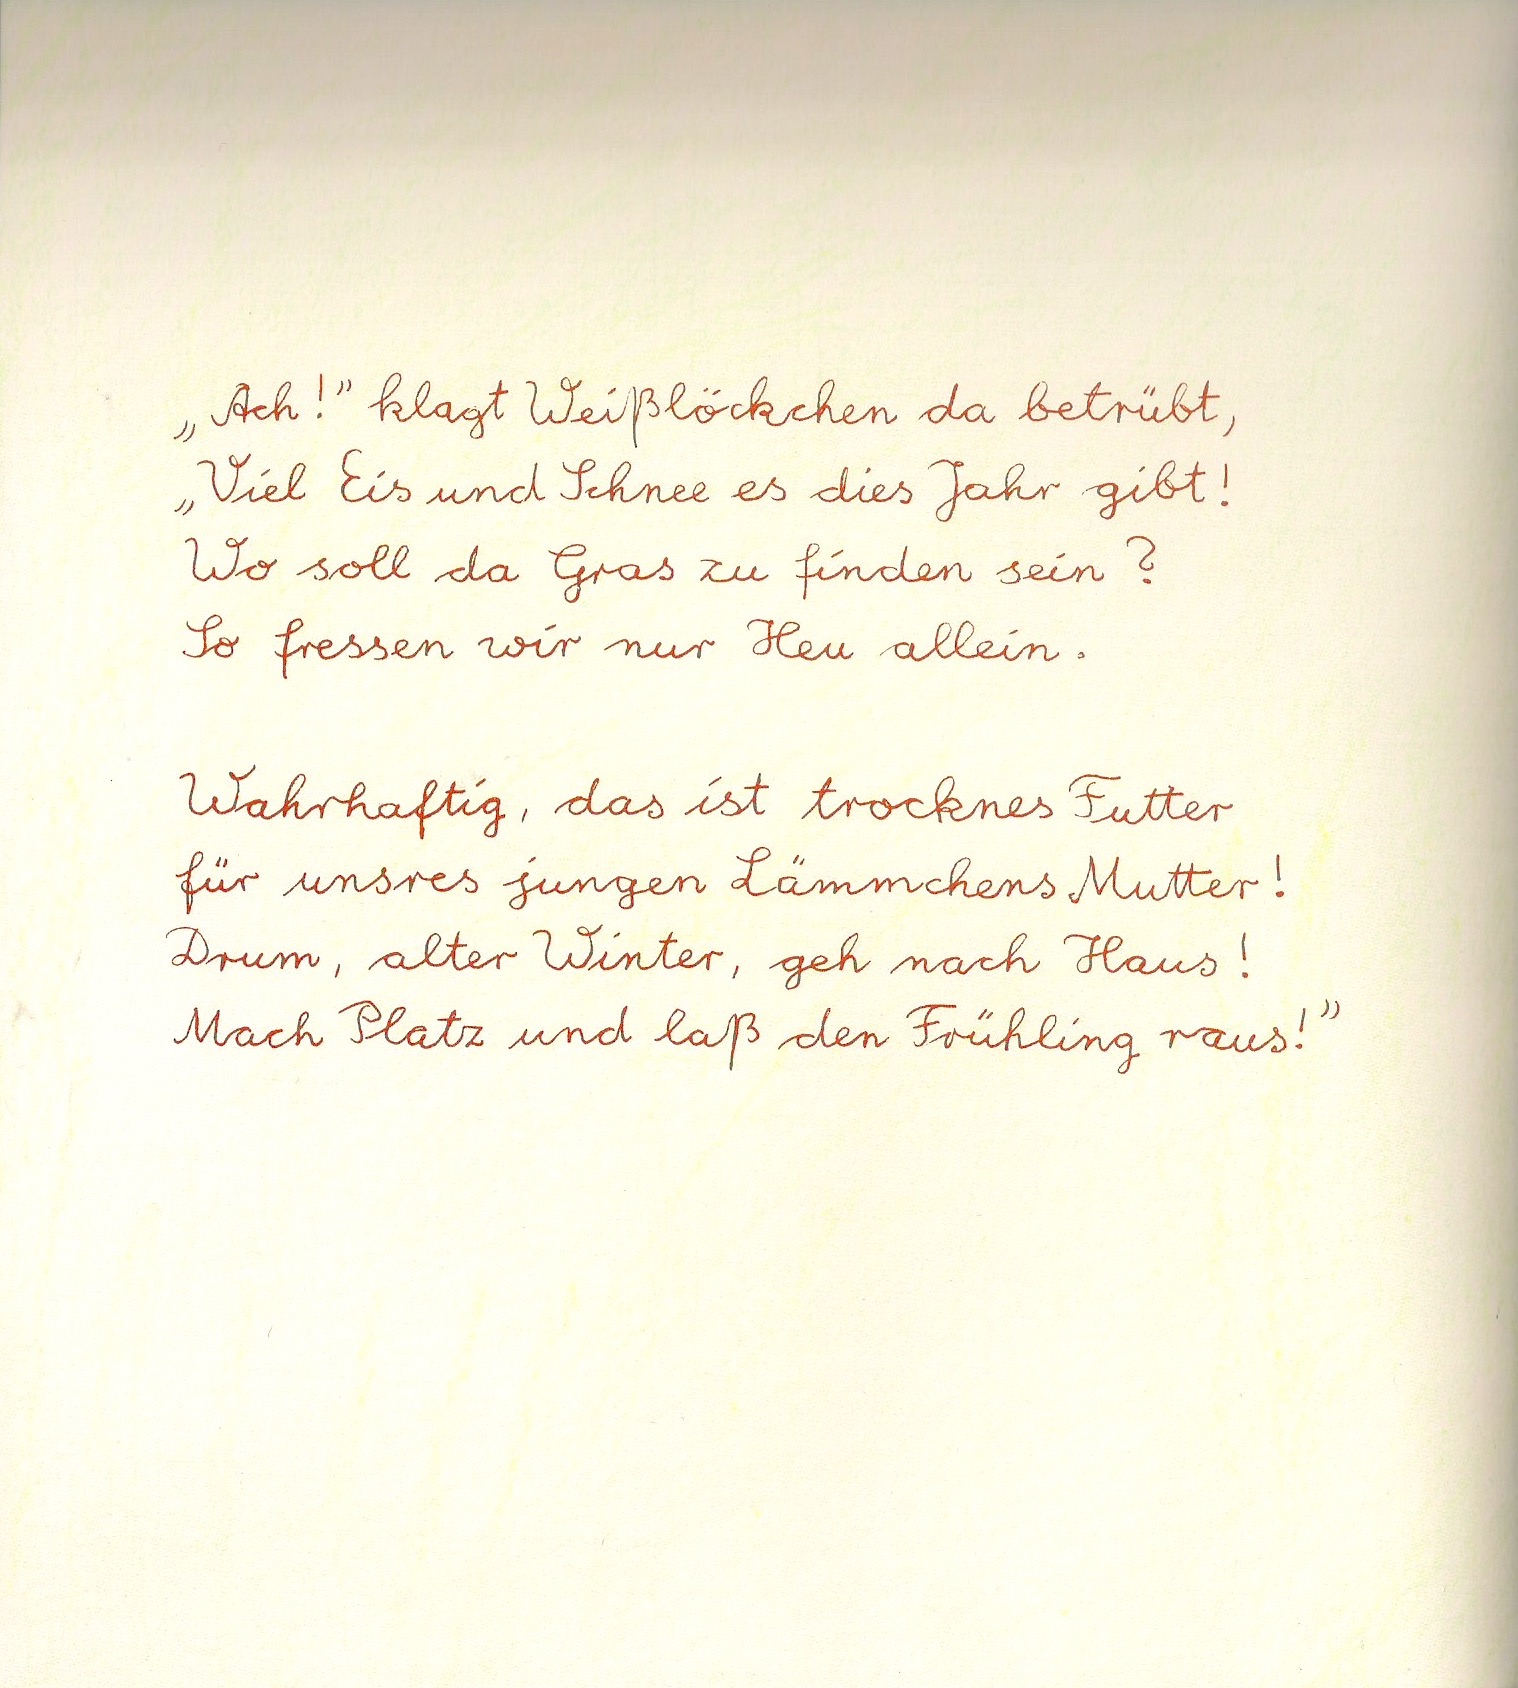 „Ach!” klagt Weißlöckchen da betrübt,
„Viel Eis und Schnee es dies Jahr gibt!
Wo soll da Gras zu finden sein?
So fressen wir nur Heu allein.

Wahrhaftig, das ist trocknes Futter
für unsres jungen Lämmchens Mutter!
Drum, alter Winter, geh nach Haus!
Mach Platz und laß den Frühling raus!”